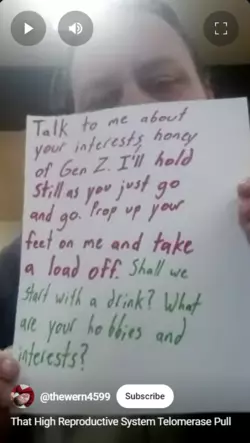 Talk to me about
your interests, honey
of Gen Z. I'll hold
still as you just go
and go. Prop up your
feet on me and take
a load off. Shall we
start with a drink? What
are your hobbies and
interests?
@thewern4599 Subscribe
That High Reproductive System Telomerase Pull